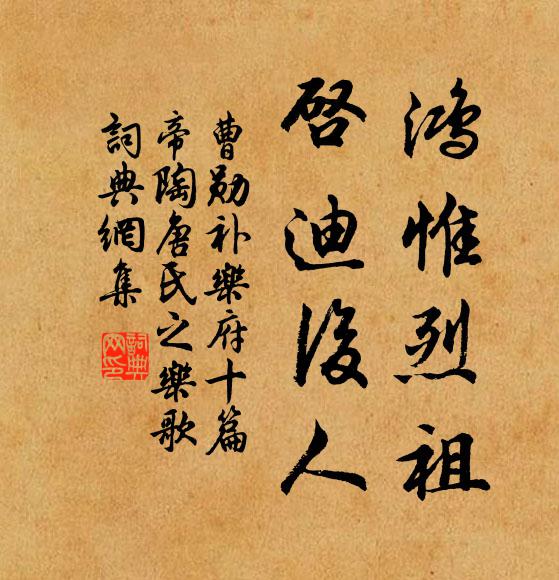 鴻惟烈祖
啓迪後人
曹勛补樂府十篇
帝陶唐氏之樂歌
詞典網集
詞典
网印